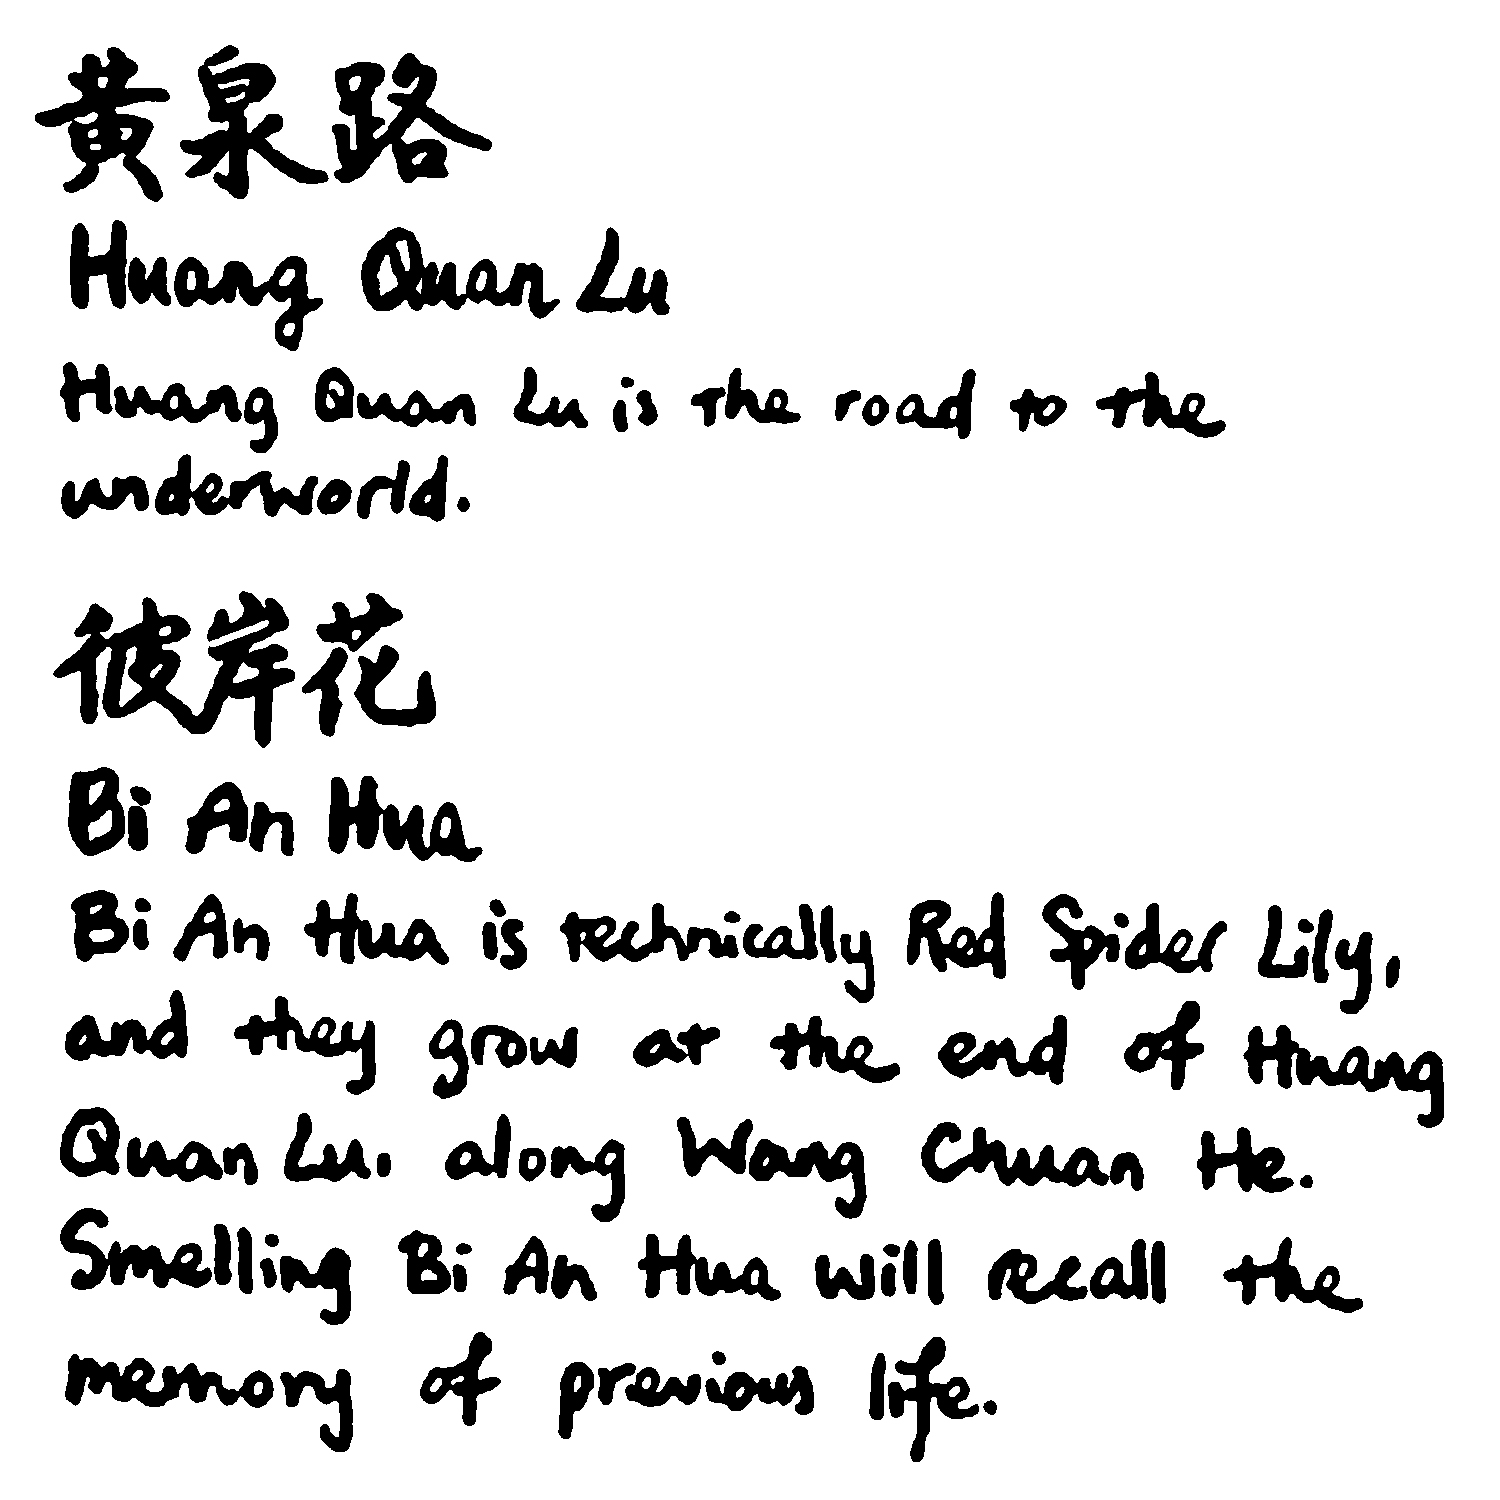 黄泉路
Huang Quan Lu
Huang Quan Lu is the road to the
underworld.
彼岸花
Bi An Hua
Bi An Hua is technically Red Spider Lily,
and they grow at the end of Huang
Quan Lu, along Wang Chuan He.
Smelling Bi An Hua will recall the
memory of previous life.